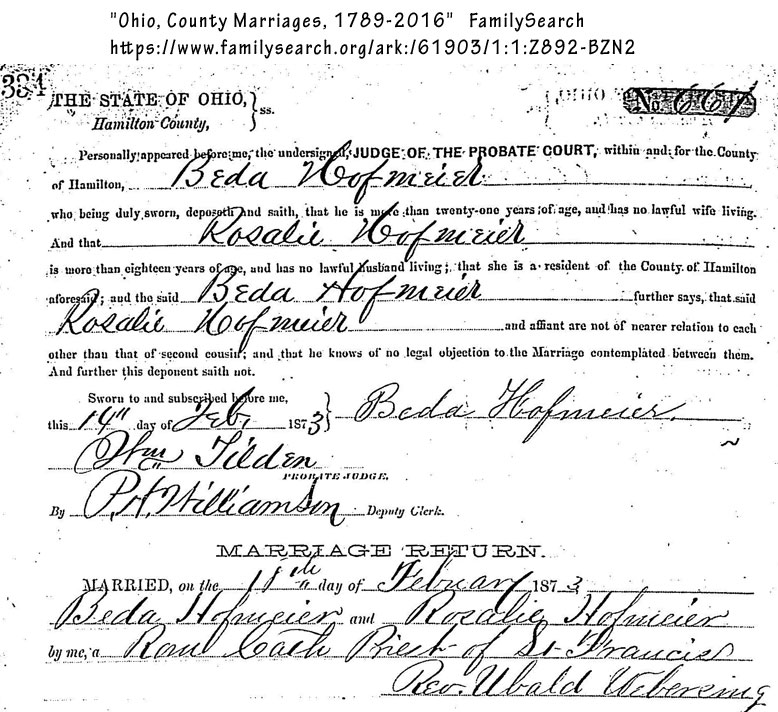 "Ohio, County Marriages, 1789-2016" FamilySearch
https://www.familysearch.org/ark:/61903/1:1:Z892-BZN2
334
THE STATE OF OHIO, } ss. OHIO No. 667
Hamilton County,
Personally appeared before me, the undersigned, JUDGE OF THE PROBATE COURT, within and for the County
of Hamilton, Beda Hofmeier
who being duly sworn, deposeth and saith, that he is more than twenty-one years of age, and has no lawful wife living.
And that Rosalie Hofmeier
is more than eighteen years of age, and has no lawful husband living; that she is a resident of the County of Hamilton
aforesaid; and the said Beda Hofmeier further says, that said
Rosalie Hofmeier and affiant are not of nearer relation to each
other than that of second cousin; and that he knows of no legal objection to the Marriage contemplated between them.
And further this deponent saith not.
Sworn to and subscribed before me,
this 14" day of Feb, 1873 } Beda Hofmeier.
Wm Tilden
PROBATE JUDGE.
By P.H. Williamson Deputy Clerk.
MARRIAGE RETURN.
MARRIED, on the 18th day of Februar 1873
Beda Hofmeier and Rosalie Hofmeier
by me, a Rom Cath Priest of St Francis
Rev. Ubald Webersing